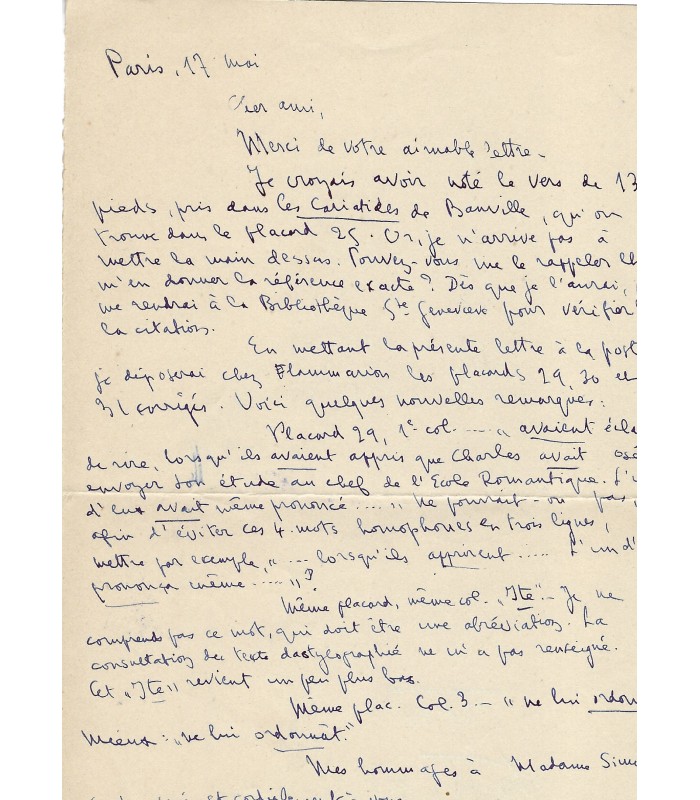 Paris, 17 mai
Cher ami,
Merci de votre aimable lettre.
Je croyais avoir noté le vers de 13
pieds, pris dans les Cariatides de Banville, qu'on
trouve dans le placard 25. Or, je n'arrive pas à
mettre la main dessus. Pouvez-vous me le rappeler et
m'en donner la référence exacte? Dès que je l'aurai,
me rendrai à la Bibliothèque Ste Geneviève pour vérifier
la citation.
En mettant la présente lettre à la post
je déposerai chez Flammarion les placards 29, 30 et
31 corrigés. Voici quelques nouvelles remarques:
Placard 29, 1e col. ..... " avaient écla
de rire, lorsqu'ils avaient appris que Charles avait osé
envoyer son étude au chef de l'Ecole Romantique. L'u
d'eux avait même prononcé ..... " Ne pourrait-on pas,
afin d'éviter ces 4 mots homophones en trois lignes,
mettre par exemple, " ... lorsqu'ils apprirent ..... L'un d'
prononça même ..... "?
Même placard, même col. "Ite" - Je ne
comprends pas ce mot, qui doit être une abréviation. La
consultation du texte dactylographié ne m'a pas renseigné.
Cet "Ite" revient un peu plus bas.
Même plac. Col. 3. - " ne lui ordon
Mieux: "ne lui ordonnât."
Mes hommages à Madame Sim
et cordialement à vous